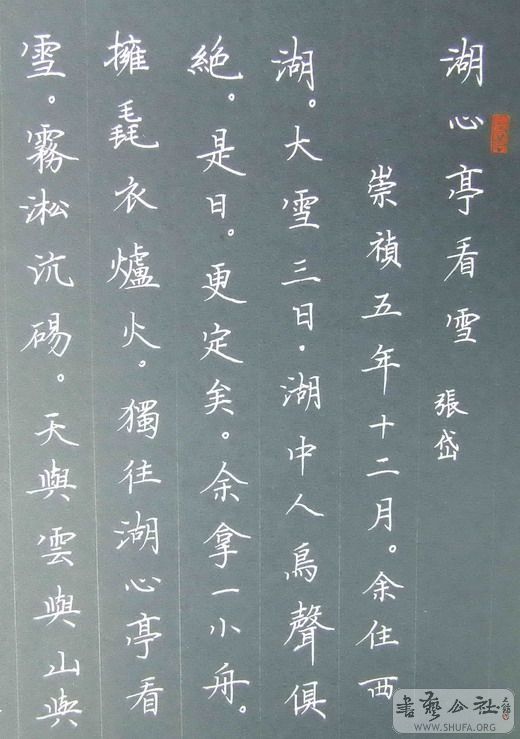 湖心亭看雪 張岱
崇禎五年十二月。余住西
湖。大雪三日．湖中人鳥聲俱
絶。是日。更定矣。余拿一小舟。
擁毳衣爐火。獨往湖心亭看
雪。霧淞沆碭。天與雲與山與
書藝公社
WWW.SHUFA.ORG